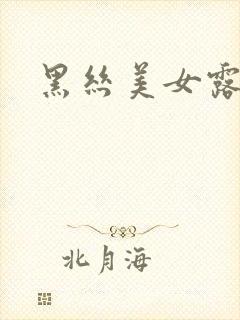 黑丝美女露
北月海